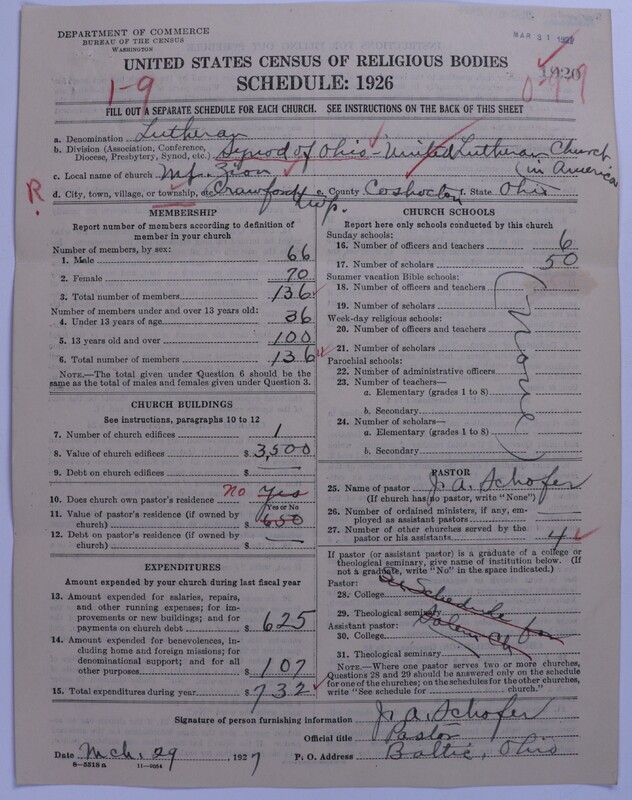 DEPARTMENT OF COMMERCE
BUREAU OF THE CENSUS
WASHINGTON
MAR 31 1927
UNITED STATES CENSUS OF RELIGIOUS BODIES
SCHEDULE: 1926
1-9
FILL OUT A SEPARATE SCHEDULE FOR EACH CHURCH. SEE INSTRUCTIONS ON THE BACK OF THIS SHEET
a. Denomination Lutheran
b. Division (Association, Conference, Diocese, Presbytery, Synod, etc.) Synod of Ohio - United Lutheran Church (in America
c. Local name of church Mt. Zion
R
d. City, town, village, or township, etc. Crawford Twp. e. County Coshocton f. State Ohio
MEMBERSHIP
Report number of members according to definition of member in your church
Number of members, by sex:
1. Male 66
2. Female 70
3. Total number of members 136
Number of members under and over 13 years old:
4. Under 13 years of age 36
5. 13 years old and over 100
6. Total number of members 136
NOTE.—The total given under Question 6 should be the same as the total of males and females given under Question 3.
CHURCH BUILDINGS
See instructions, paragraphs 10 to 12
7. Number of church edifices 1
8. Value of church edifices $ 3,500
9. Debt on church edifices $ —
10. Does church own pastor's residence no Yes
Yes or No
11. Value of pastor's residence (if owned by church) $ 650
12. Debt on pastor's residence (if owned by church) $ —
EXPENDITURES
Amount expended by your church during last fiscal year
13. Amount expended for salaries, repairs, and other running expenses; for improvements or new buildings; and for payments on church debt $ 625
14. Amount expended for benevolences, including home and foreign missions; for denominational support; and for all other purposes $ 107
15. Total expenditures during year $ 732
CHURCH SCHOOLS
Report here only schools conducted by this church
Sunday schools:
16. Number of officers and teachers 6
17. Number of scholars 50
Summer vacation Bible schools:
18. Number of officers and teachers
19. Number of scholars
Week-day religious schools:
20. Number of officers and teachers
21. Number of scholars
Parochial schools:
22. Number of administrative officers
23. Number of teachers—
a. Elementary (grades 1 to 8)
b. Secondary
24. Number of scholars—
a. Elementary (grades 1 to 8)
b. Secondary
(None)
PASTOR
25. Name of pastor J. A. Schofer
(If church has no pastor, write "None")
26. Number of ordained ministers, if any, employed as assistant pastors —
27. Number of other churches served by the pastor or his assistants 4
If pastor (or assistant pastor) is a graduate of a college or theological seminary, give name of institution below. (If not a graduate, write "No" in the space indicated.)
Pastor:
28. College
See Schedule for
29. Theological seminary
Salem Ch
Assistant pastor:
30. College
31. Theological seminary
NOTE.—Where one pastor serves two or more churches, Questions 28 and 29 should be answered only on the schedule for one of the churches; on the schedules for the other churches, write "See schedule for ______ church."
Signature of person furnishing information J. A. Schofer
Official title Pastor
Date Mch. 29, 1927 P. O. Address Baltic, Ohio
8—5518 a 11—9014